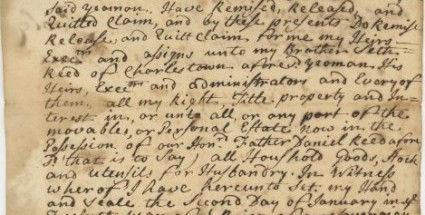 said yeoman. Have Remised, Released, and
Quitted Claim, and by these presents Do Remise
Release, and Quitt Claim for me my Heirs
Execrs and assigns unto my Brother Seth
Reed of Charlestown afores yeoman His
Heirs, Execrs and administrators and Every of
them, all my Right, Title property and In-
terest in, or unto all or any part of the
movables, or Personal Estate now in the
Possession of our Hond Father Daniel Reed afore
sd that is to Say, all Houshold goods, Stock
and utensils for Husbandry. In Witness
wherof I have hereunto Set my Hand
and Seale the Second Day of January in ye